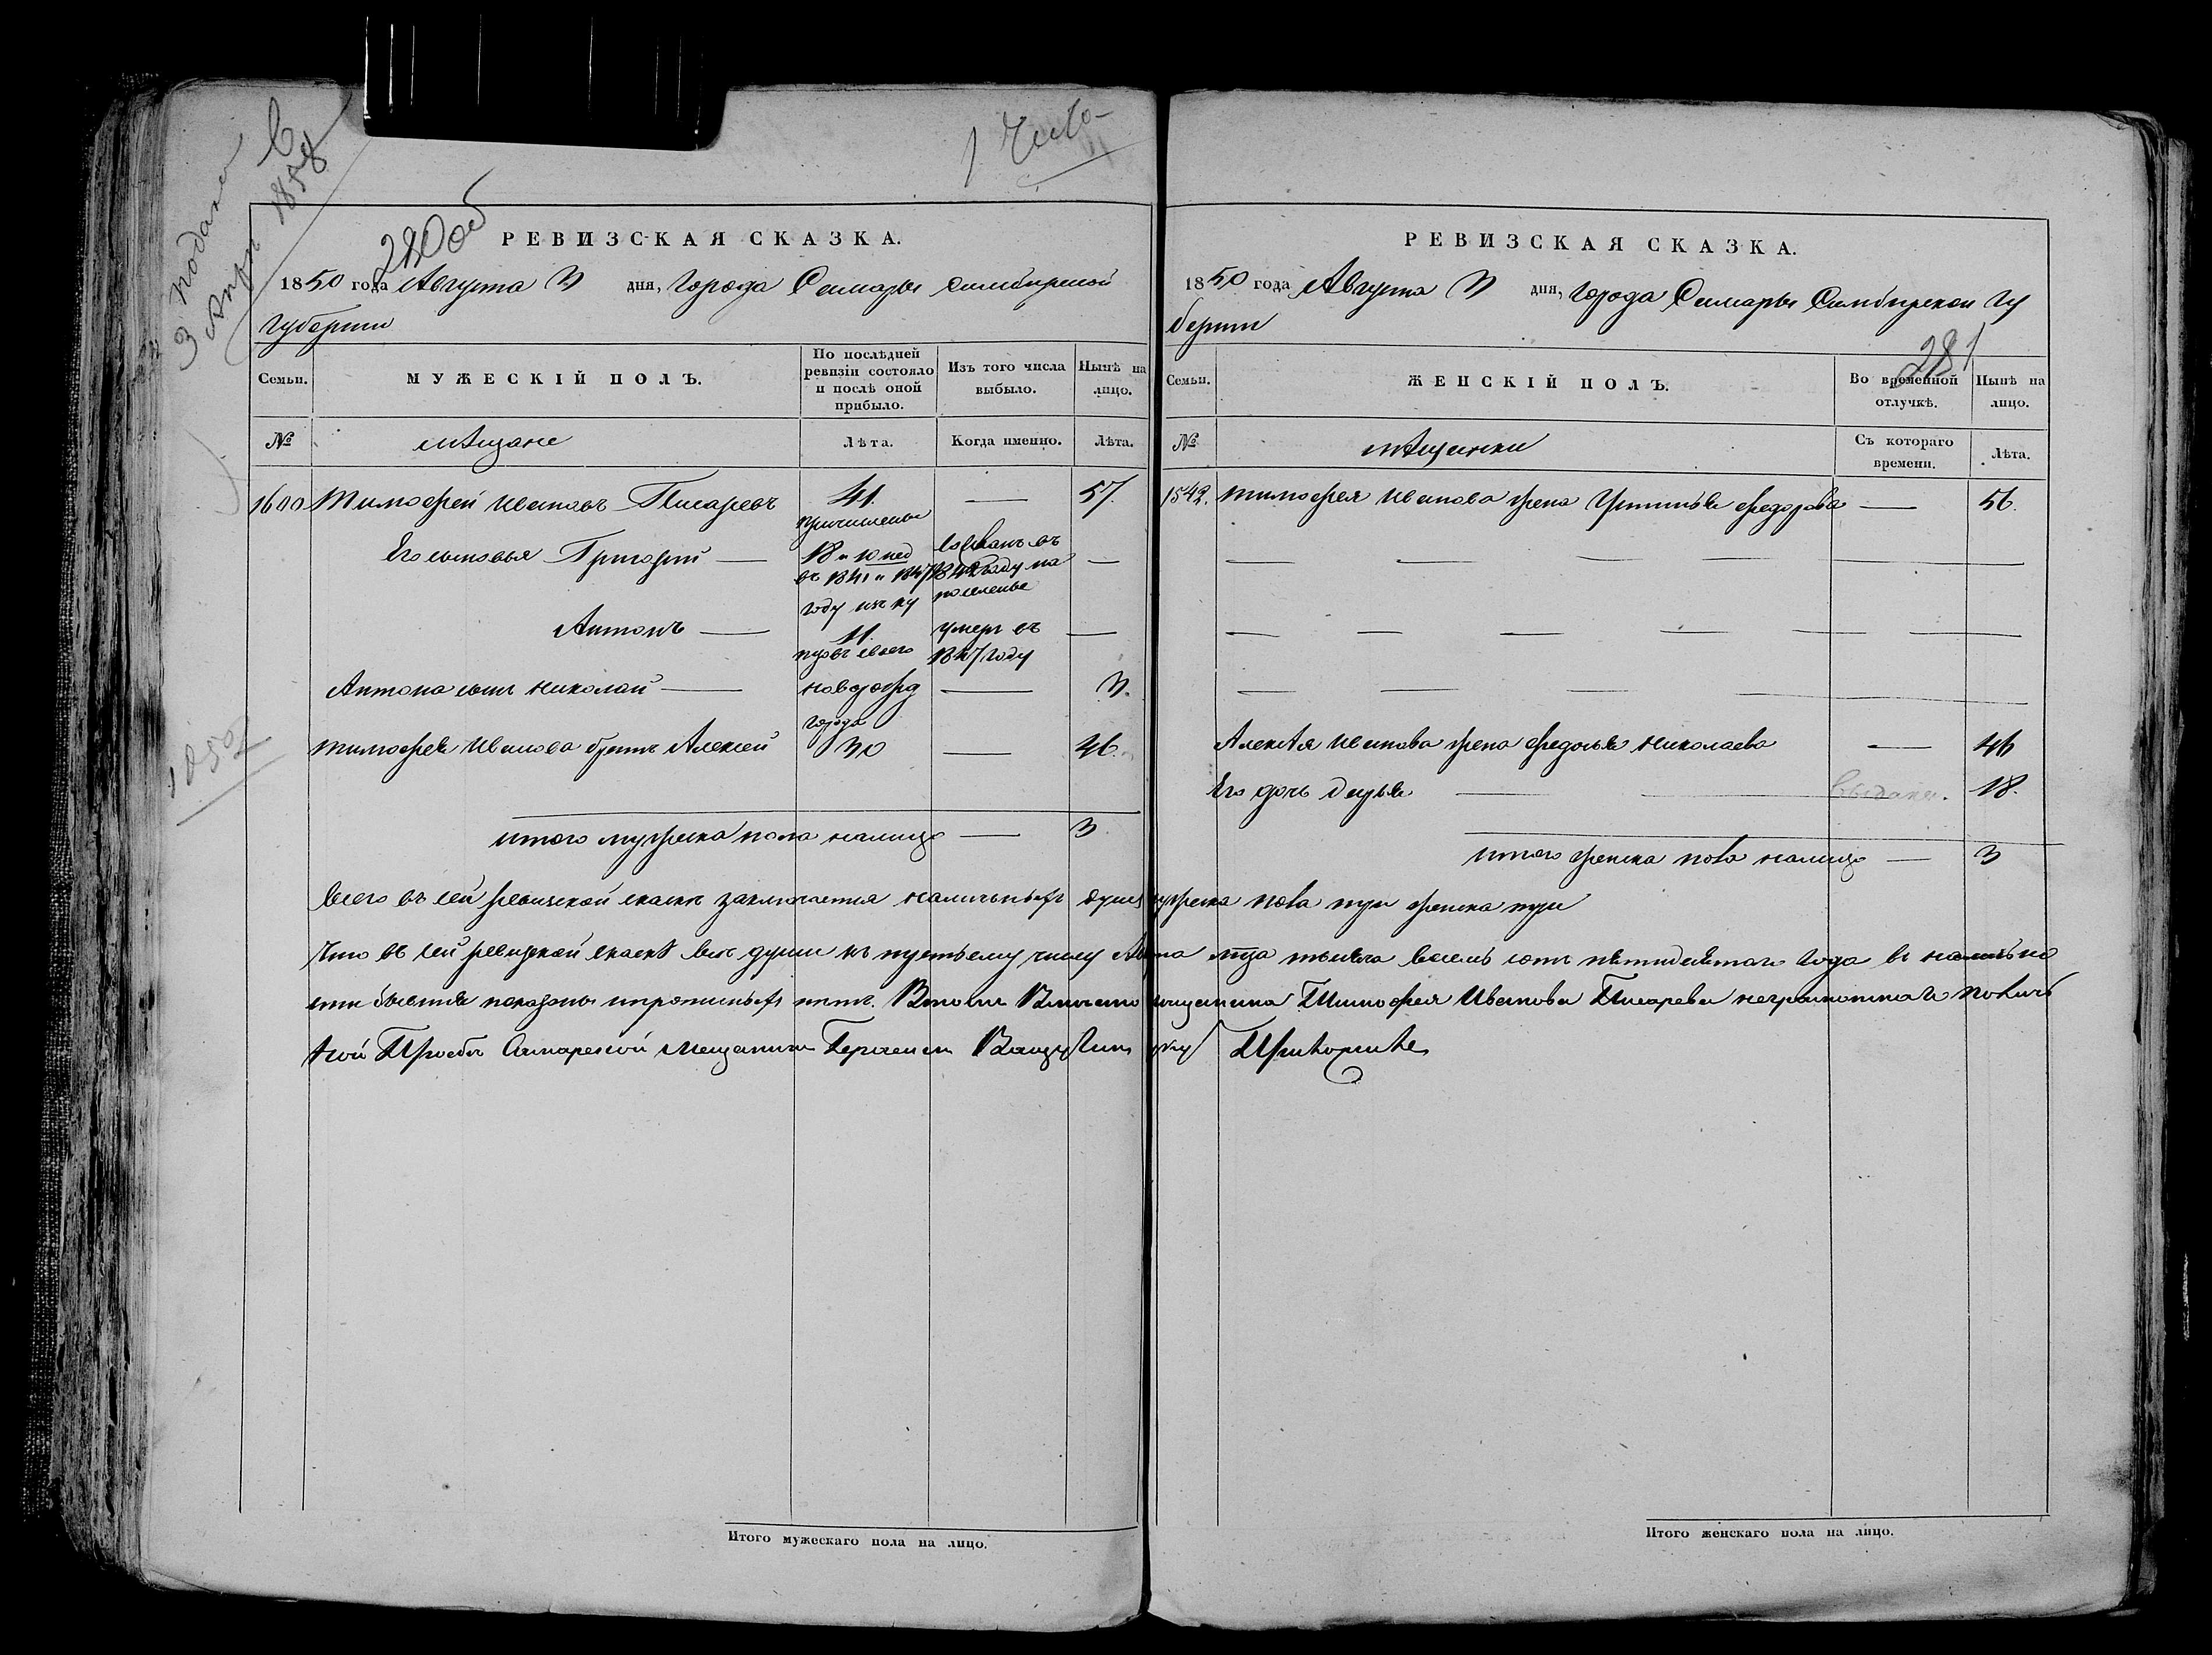 3 подана
Апрл 1858
1 Чело-
280 об
РЕВИЗСКАЯ СКАЗКА.
1850 года Августа 3 дня, города Самары Симбирской
губернии
Семьи.
МУЖЕСКІЙ ПОЛЪ.
По послѣдней ревизіи состояло и послѣ оной прибыло.
Изъ того числа выбыло.
Нынѣ на лицо.
№
мѣщане
Лѣта.
Когда именно.
Лѣта.
1600 Тимофей Ивановъ Писаревъ 41 — 57.
причислены
Его сыновья Григорий — 18 и 10 нед — —
въ 1841 и 1847 1842 году на
году изъ ку поселенье
Антонъ — 11. умеръ въ —
1847 году
Антона сынъ Николай — новорожд — 3.
города
Тимофея Иванова братъ Алексей 30 — 46.
итого мужеска пола налицо — 3
РЕВИЗСКАЯ СКАЗКА.
1850 года Августа 3 дня, города Самары Симбирской гу
бернии
281
Семьи.
ЖЕНСКІЙ ПОЛЪ.
Во временной отлучкѣ.
Нынѣ на лицо.
№
мѣщанки
Съ котораго времени.
Лѣта.
1542. Тимофея Иванова жена Устинья Федорова — 56.
Алексѣя Иванова жена Федосья Николаева — 46
Его дочь Дарья — выдана. 18.
итого женска пола налицо — 3
1850
Всего въ сей ревизской сказке заключается наличныхъ душъ мужеска пола три женска три
Что въ сей ревизской сказкѣ все души къ третьему числу Августа мца тысяча восемь сотъ пятидесятаго года в наличьно
сти бывшия показаны и прописныхъ нетъ. В томъ вместо мещанина Тимофея Иванова Писарева неграмотнаго по лич
ной Просбе Самарской мещанинъ Герасимъ руку Приложилъ
Итого мужескаго пола на лицо.
Итого женскаго пола на лицо.